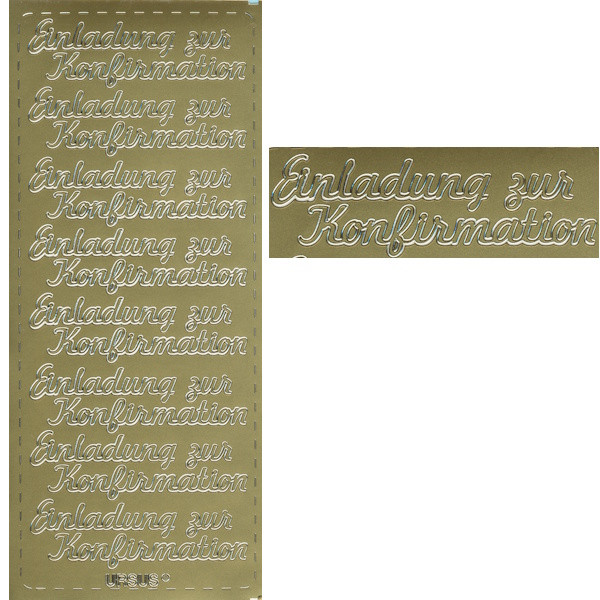 Einladung zur
Konfirmation
Einladung zur
Konfirmation
Einladung zur
Konfirmation
Einladung zur
Konfirmation
Einladung zur
Konfirmation
Einladung zur
Konfirmation
Einladung zur
Konfirmation
Einladung zur
Konfirmation
URSUS ®
Einladung zur
Konfirmation